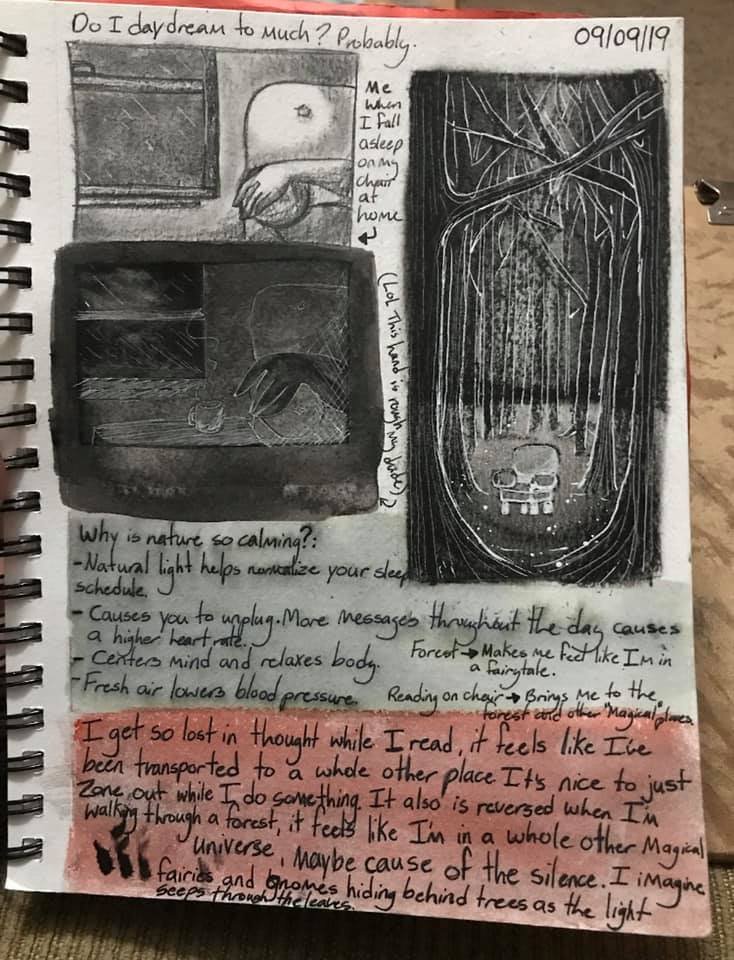 Do I daydream to Much? Probably.
09/09/19
Me
when
I fall
asleep
on my
chair
at
home
(LoL This hand is rough my dude)
Why is nature so calming?:
-Natural light helps normalize your sleep
schedule.
- Causes you to unplug. More Messages throughout the day causes
a higher heart rate.
- Centers mind and relaxes body.
- Fresh air lowers blood pressure.
Forest → Makes me feel like I'm in
a fairytale.
Reading on chair → Brings Me to the
forest and other "Magical" places.
I get so lost in thought while I read, it feels like I've
been transported to a whole other place It's nice to just
Zone out while I do something. It also is reversed when I'm
walking through a forest, it feels like I'm in a whole other Magical
universe, Maybe cause of the silence. I iMagine
fairies and gnomes hiding behind trees as the light
seeps through the leaves.